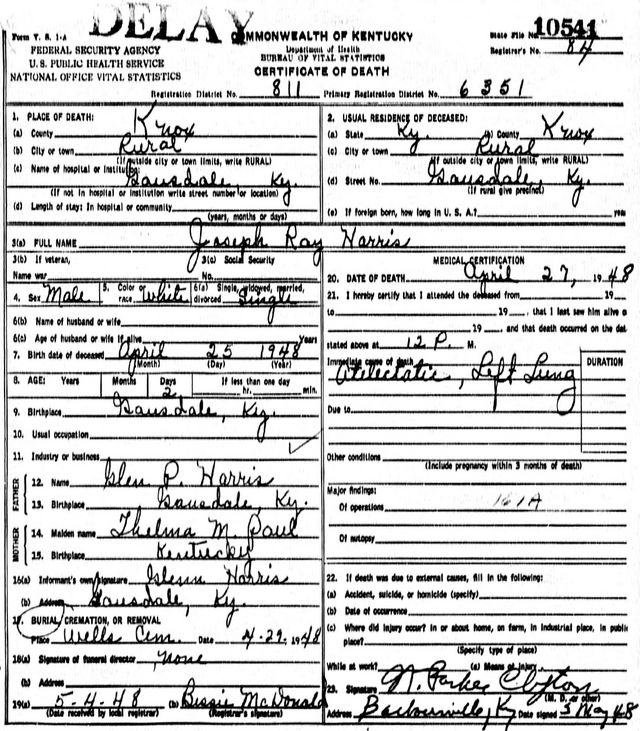 DELAY
Form V. S. 1-A
COMMONWEALTH OF KENTUCKY
State File No. 10541
FEDERAL SECURITY AGENCY
Department of Health
Registrar's No. 84
U. S. PUBLIC HEALTH SERVICE
BUREAU OF VITAL STATISTICS
NATIONAL OFFICE VITAL STATISTICS
CERTIFICATE OF DEATH
Registration District No. 811 Primary Registration District No. 6351
1. PLACE OF DEATH:
(a) County Knox
(b) City or town Rural
(If outside city or town limits, write RURAL)
(c) Name of hospital or institution
Gausdale, Ky.
(If not in hospital or institution write street number or location)
(d) Length of stay: In hospital or community
(years, months or days)
2. USUAL RESIDENCE OF DECEASED:
(a) State Ky. (b) County Knox
(c) City or town Rural
(If outside city or town limits, write RURAL)
(d) Street No. Gausdale, Ky.
(If rural give precinct)
(e) If foreign born, how long in U. S. A.? years
3(a) FULL NAME Joseph Ray Harris
3(b) If veteran, 3(c) Social Security
Name war No.
4. Sex Male 5. Color or race White 6(a) Single, widowed, married, divorced Single
6(b) Name of husband or wife
6(c) Age of husband or wife if alive Years
7. Birth date of deceased April 25 1948
(Month) (Day) (Year)
8. AGE: Years Months Days If less than one day
2 hr. min.
9. Birthplace Gausdale, Ky.
10. Usual occupation
11. Industry or business
FATHER
12. Name Glen P. Harris
13. Birthplace Gausdale, Ky.
MOTHER
14. Maiden name Thelma M. Paul
15. Birthplace Kentucky
16(a) Informant's own signature Glenn Harris
(b) Address Gausdale, Ky.
17. BURIAL, CREMATION, OR REMOVAL
Place Wells Cem. Date 4-29-1948
18(a) Signature of funeral director, none
(b) Address
19(a) 5-4-48 (b) Bessie McDonald
(Date received by local registrar) (Registrar's signature)
MEDICAL CERTIFICATION
20. DATE OF DEATH April 27, 1948
21. I hereby certify that I attended the deceased from 19
to 19, that I last saw him alive o
19 and that death occurred on the date
stated above at 12 P. M.
Immediate cause of death
DURATION
Atelectatic, Left Lung
Due to
Other conditions
(Include pregnancy within 3 months of death)
Major findings:
Of operations 161A
Of autopsy
22. If death was due to external causes, fill in the following:
(a) Accident, suicide, or homicide (specify)
(b) Date of occurrence
(c) Where did injury occur? In or about home, on farm, in industrial place, in public
place?
(Specify type of place)
While at work? (e) Means of injury
23. Signature N. Parker Clayton
(M. D. or other)
Address Barbourville, Ky Date signed 3 May 48